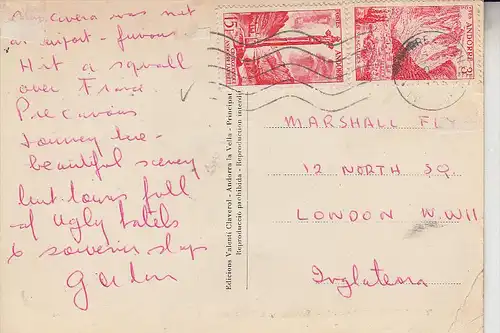 was not
at airport - furious
Hit a squall
over France
Precarious
journey here -
beautiful scenery
but towns full
of ugly hotels
& souvenir shops
Gordon
Edicions Valentí Claverol - Andorra la Vella - Principat
Reproducció prohibida - Reproduction interdite
ANDORRE
ANDORRE
MARSHALL
12 NORTH SQ.
LONDON N.W11
Inglaterra